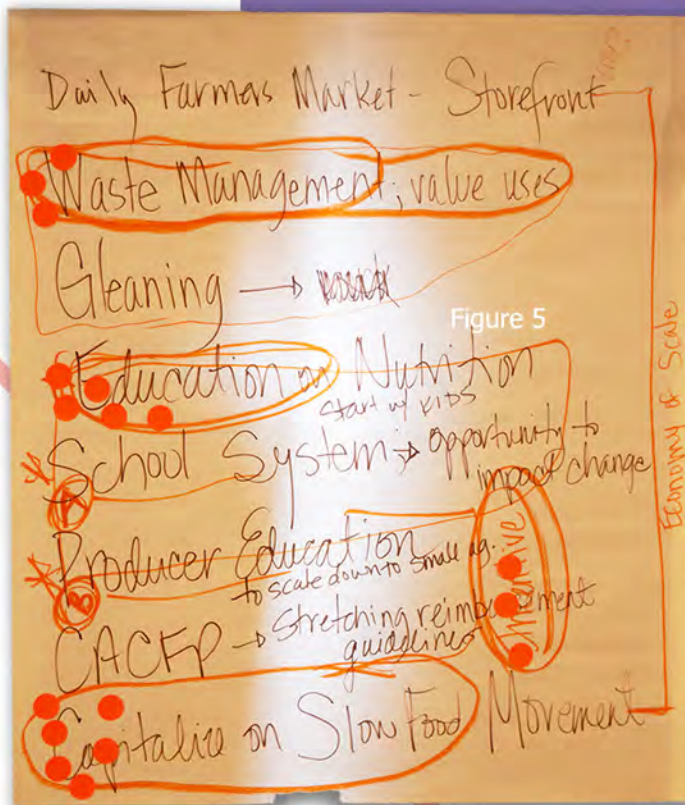 Daily Farmers Market - Storefront
Waste Management; value uses
Gleaning →
Figure 5
Education on Nutrition
start w/ KIDS
School System → opportunity to
impact change
A
Producer Education
to scale down to small ag..
B
CACFP → Stretching reimbursement
guidelines
Capitalize on Slow Food Movement
Economy of Scale